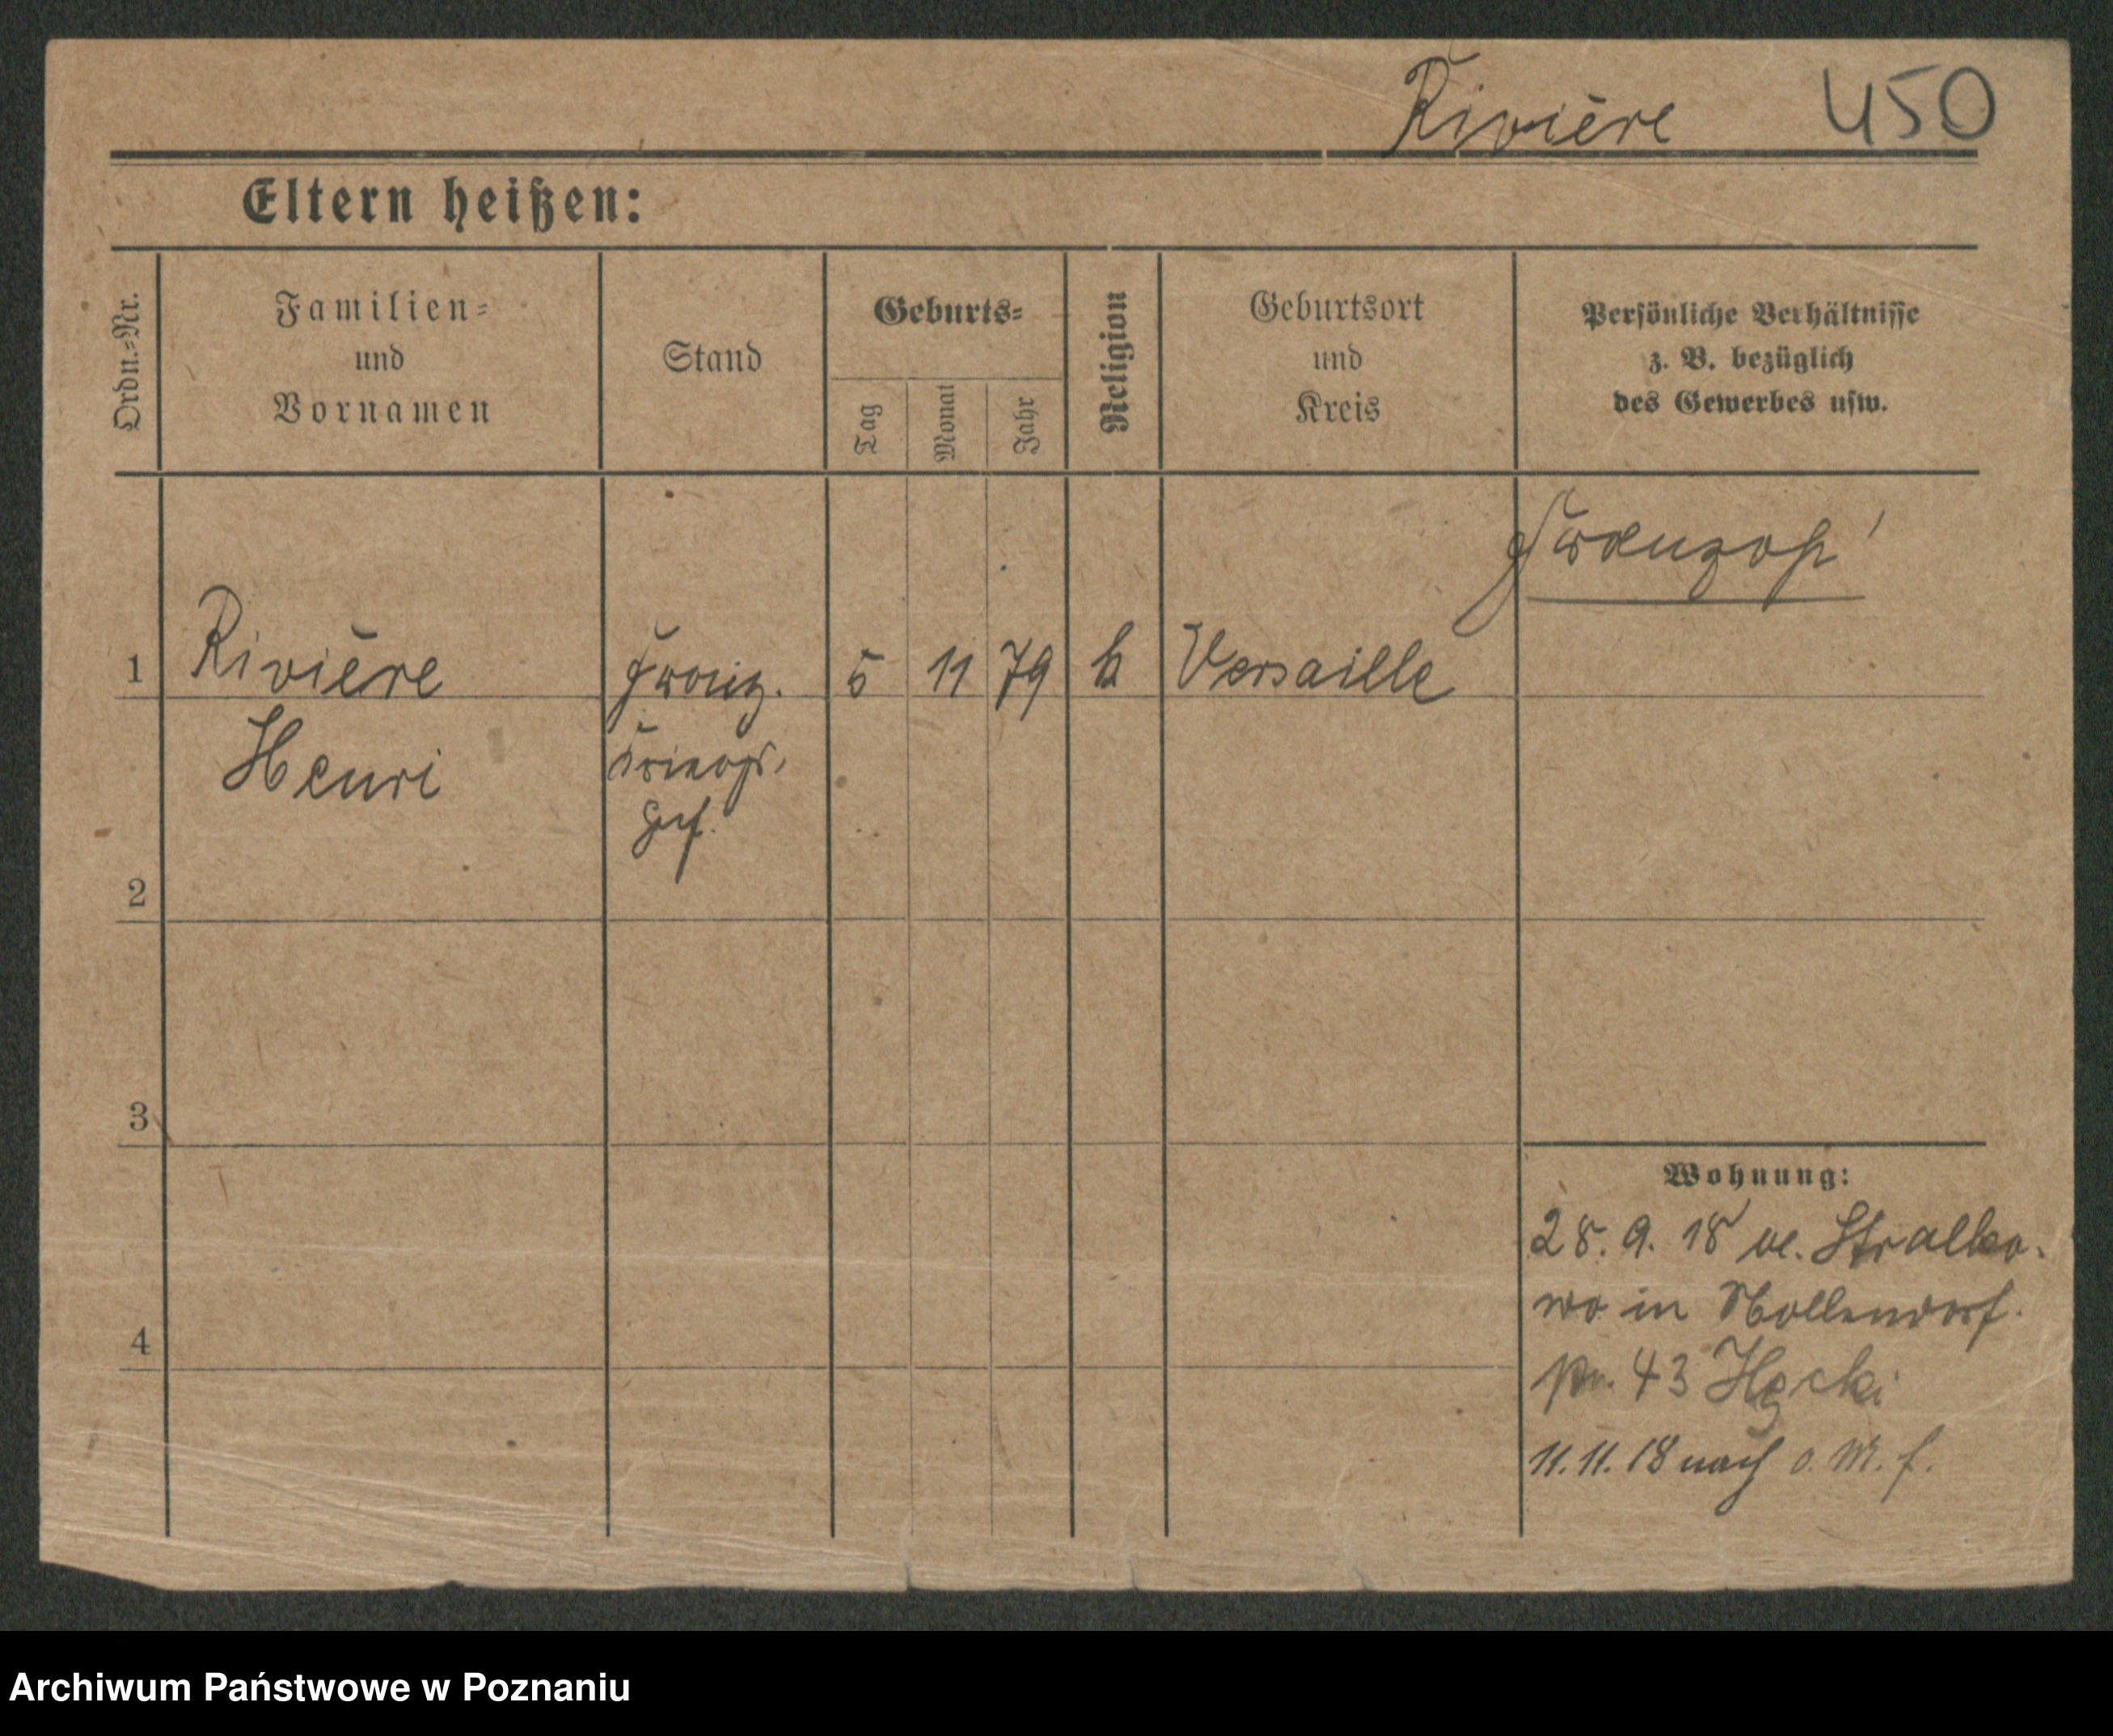 Rivière 450
Eltern heißen:
Ordn.-Nr.
Familien-
und
Vornamen
Stand
Geburts-
Tag
Monat
Jahr
Religion
Geburtsort
und
Kreis
Persönliche Verhältnisse
z. B. bezüglich
des Gewerbes usw.
Franzose!
1 Rivière franz. 5 11 79 k Versaille
Henri Kriegs-
Gef.
2
3
4
Wohnung:
28. 9. 18 v. Stralko-
wo in Nollendorf-
43
11. 11. 18 nach o. M. f.
Archiwum Państwowe w Poznaniu